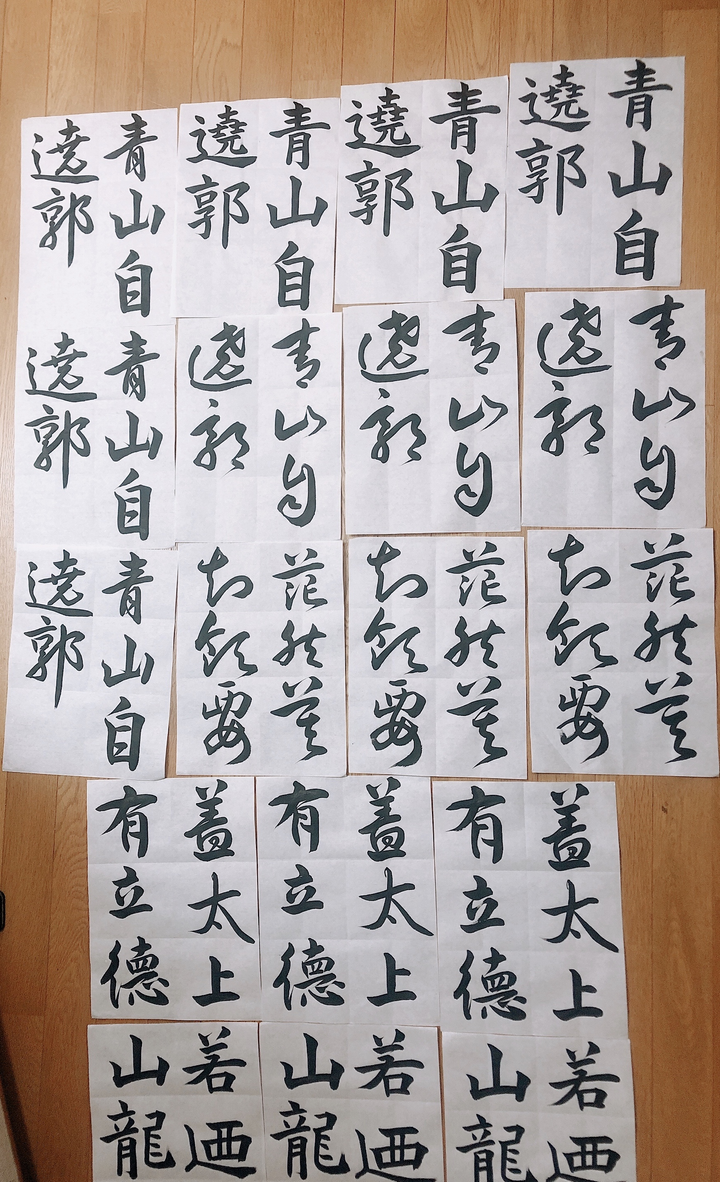 青山自
遶郭
青山自
遶郭
青山自
遶郭
青山自
遶郭
青山自
遶郭
青山自
遶郭
青山自
遶郭
青山自
遶郭
茫然莫
知領要
茫然莫
知領要
茫然莫
知領要
青山自
遶郭
蓋太上
有立德
蓋太上
有立德
蓋太上
有立德
若迺
山龍
若迺
山龍
若迺
山龍